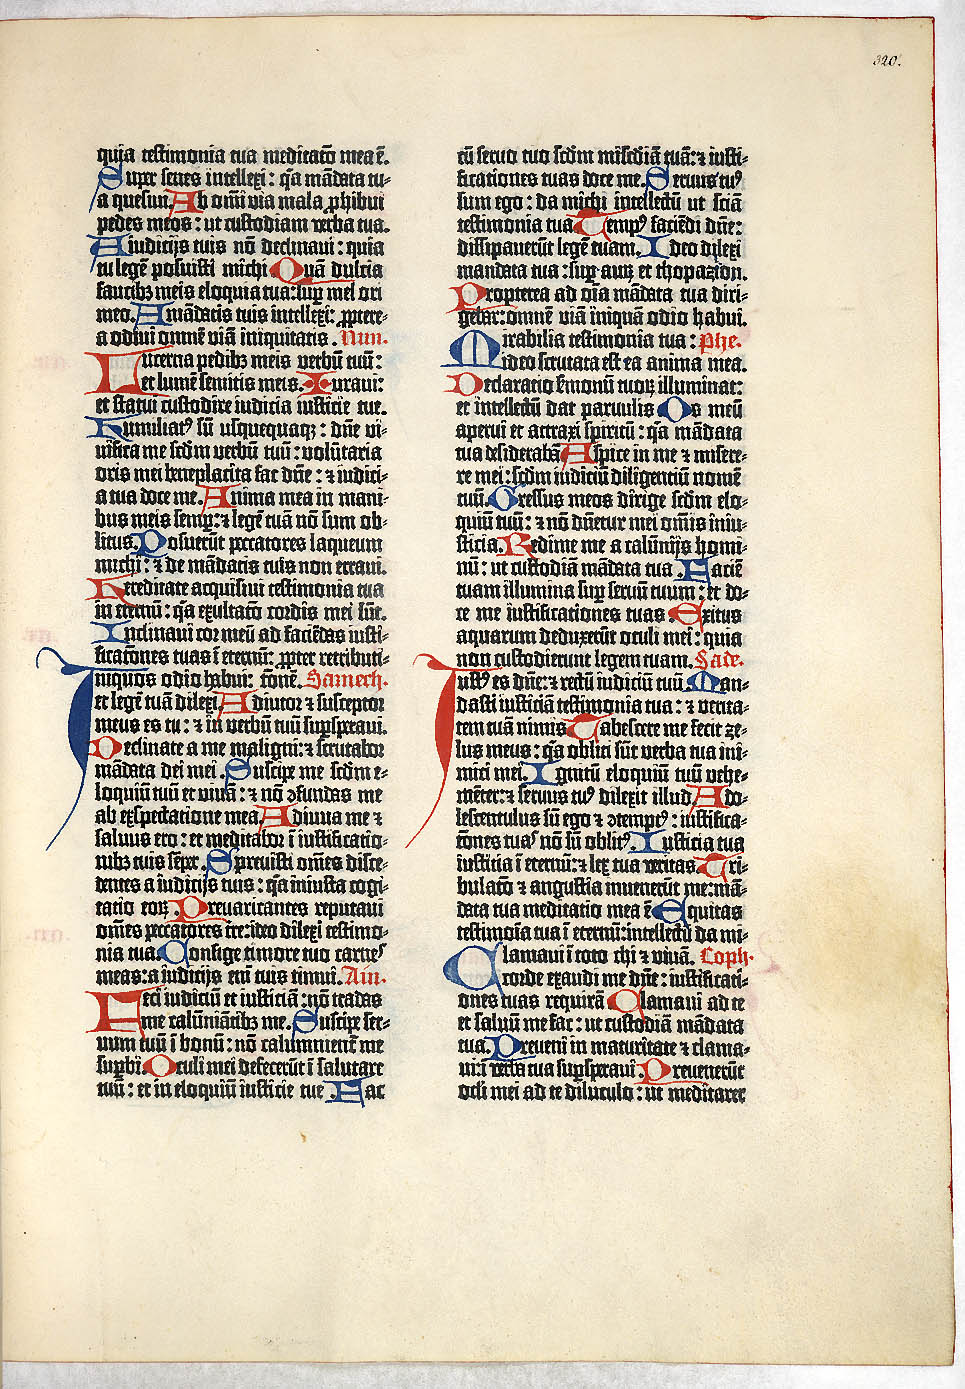 320.
quia testimonia tua meditatō mea ē.
Super senes intellexi: q̄a mādata tu-
a quesiui. Ab om̄i via mala ꝓhibui
pedes meos: ut custodiam verba tua.
A iudicijs tuis nō declinaui: quia
tu legē posuisti michi. Quā dulcia
faucibꝫ meis eloquia tua: suꝑ mel ori
meo. A mādatis tuis intellexi: ꝓpter-
ea odiui omnē viā iniquitatis. Nun.
Lucerna pedibꝫ meis verbū tuū:
et lumē semitis meis. Iuraui:
et statui custodire iudicia iusticie tue.
Humiliatꝰ sū usquequaqꝫ: dn̄e vi-
uifica me scdm verbū tuū: volūtaria
oris mei beneplacita fac dn̄e: ⁊ iudici-
a tua doce me. Anima mea in mani-
bus meis semꝑ: ⁊ legē tuā nō sum ob-
litus. Posuerūt peccatores laqueum
michi: ⁊ de mādatis tuis non erraui.
Hereditate acquisiui testimonia tua
in eternū: q̄a exultatō cordis mei sūt.
Inclinaui cor meū ad faciēdas iusti-
ficatōnes tuas ī eternū: ꝓpter retributi-
Iniquos odio habui: tonē. Samech.
et legē tuā dilexi. Adiutor ⁊ susceptor
meus es tu: ⁊ in verbū tuū suꝑsperaui.
Declinate a me maligni: ⁊ scrutabor
mādata dei mei. Suscipe me scdm e-
loquiū tuū et viuā: ⁊ nō ꝯfundas me
ab exspectatione mea. Adiuua me ⁊
saluus ero: et meditabor ī iustificatio-
nibꝫ tuis semꝑ. Spreuisti om̄es disce-
dentes a iudicijs tuis: q̄a iniusta cogi-
tatio eoꝝ. Preuaricantes reputaui
om̄es peccatores tre: ideo dilexi testimo-
nia tua. Confige timore tuo carnes
meas: a iudicijs em̄ tuis timui. Ain.
Feci iudiciū et iusticiā: nō tradas
me calūniātibꝫ me. Suscipe ser-
uum tuū ī bonū: nō calumnient me
suꝑbi. Oculi mei defecerūt ī salutare
tuū: et in eloquiū iusticie tue. Fac
cū seruo tuo scdm misc̄diā tuā: ⁊ iusti-
ficationes tuas doce me. Seruus tuꝰ
sum ego: da michi intellectū ut sciā
testimonia tua. Tempꝰ faciēdi dn̄e:
dissipauerūt legē tuam. Ideo dilexi
mandata tua: suꝑ auꝝ et thopazion.
Propterea ad oīa mādata tua diri-
gebar: omnē viā iniquā odio habui.
Mirabilia testimonia tua: Phe.
ideo scrutata est ea anima mea.
Declaratio s̄monū tuoꝝ illuminat:
et intellectū dat paruulis. Os meū
aperui et attraxi spiritū: q̄a mādata
tua desiderabā. Aspice in me ⁊ misere-
re mei: scdm iudiciū diligentiū nomē
tuū. Gressus meos dirige scdm elo-
quiū tuū: ⁊ nō dn̄etur mei om̄is iniu-
sticia. Redime me a calūnijs homi-
nū: ut custodiā mādata tua. Faciē
tuam illumina suꝑ seruū tuum: et do-
ce me iustificationes tuas. Exitus
aquarum deduxerūt oculi mei: quia
non custodierunt legem tuam. Sade.
Iustꝰ es dn̄e: ⁊ rectū iudiciū tuū. Man-
dasti iusticiā testimonia tua: ⁊ verita-
tem tuā nimis. Tabescere me fecit ze-
lus meus: q̄a obliti sūt verba tua ini-
mici mei. Ignitū eloquiū tuū vehe-
mēter: ⁊ seruus tuꝰ dilexit illud. Ado-
lescentulus sū ego ⁊ ꝯtemptꝰ: iustifica-
tōnes tuas nō sū oblitꝰ. Iusticia tua
iusticia ī eternū: ⁊ lex tua veritas. Tri-
bulatō ⁊ angustia inuenerūt me: mā-
data tua meditatio mea ē. Equitas
testimoīa tua ī eternū: intellectū da mi-
Clamaui ī toto chi ⁊ viuā. Coph.
corde exaudi me dn̄e: iustificati-
ones tuas requirā. Clamaui ad te
et saluū me fac: ut custodiā mādata
tua. Preueni in maturitate ⁊ clama-
ui: ī verba tua suꝑsperaui. Preuenerūt
ocli mei ad te diluculo: ut meditarer